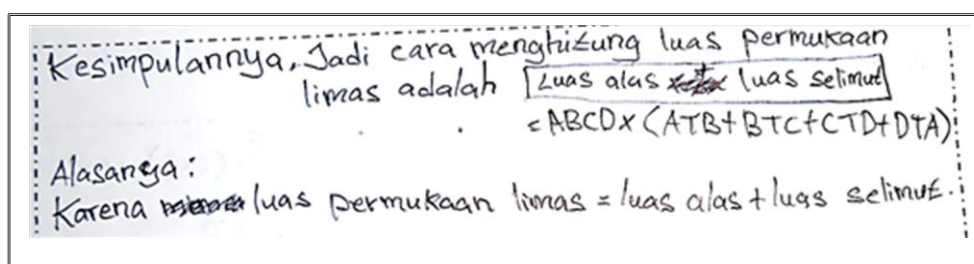 Kesimpulannya, Jadi cara menghitung luas permukaan
limas adalah Luas alas + luas selimut
= ABCD x (ATB + BTC + CTD + DTA)
Alasanya :
Karena luas permukaan limas = luas alas + luas selimut.